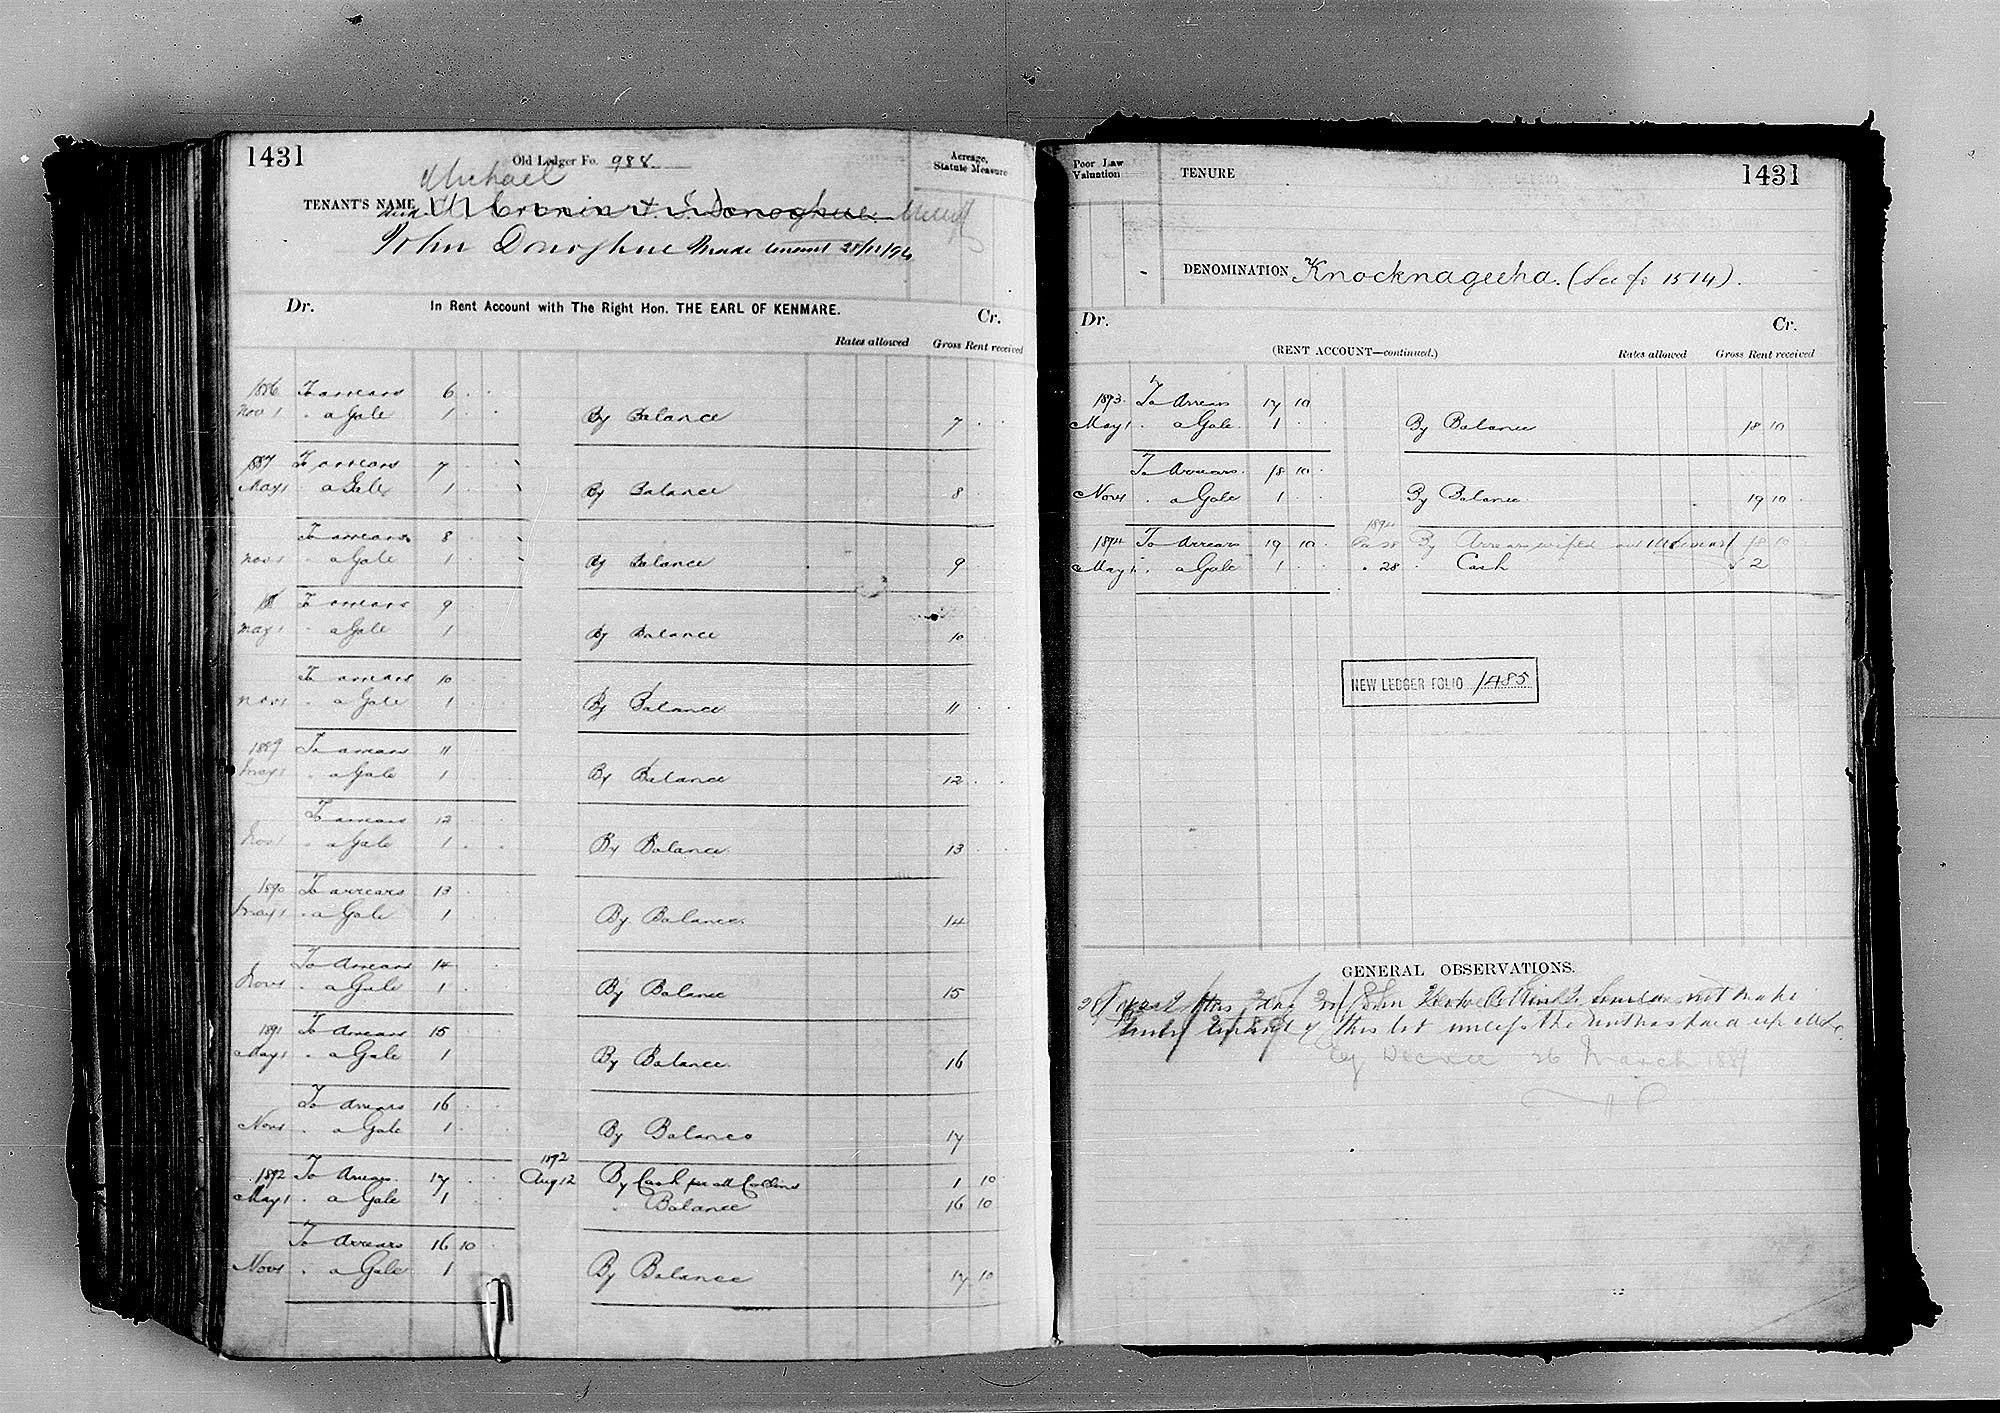 1431
Old Ledger Fo. 988
Acreage, Statute Measure
Michael
TENANT'S NAME M Cronin & J. Donoghue
John Donoghue Made tenant 28/11/94
Dr. In Rent Account with The Right Hon. THE EARL OF KENMARE. Cr.
Rates allowed Gross Rent received
1886 To arrears 6 . .
Nov 1 " a Gale 1 . . By Balance 7 . .
1887 To arrears 7 . .
May 1 " a Gale 1 . . By Balance 8 . .
To arrears 8 . .
Nov 1 " a Gale 1 . . By Balance 9 . .
88 To arrears 9 . .
May 1 " a Gale 1 . . By Balance 10 . .
To arrears 10 . .
Nov 1 " a Gale 1 . . By Balance 11 . .
1889 To arrears 11 . .
May 1 " a Gale 1 . . By Balance 12 . .
To arrears 12 . .
Nov 1 " a Gale 1 . . By Balance 13 . .
1890 To arrears 13 . .
May 1 " a Gale 1 . . By Balance 14 . .
To Arrears 14 . .
Nov 1 " a Gale 1 . . By Balance 15 . .
1891 To Arrears 15 . .
May 1 " a Gale 1 . . By Balance 16 . .
To Arrears 16 . .
Nov 1 " a Gale 1 . . By Balance 17 . .
1892
1892 To Arrears 17 . . Aug 12 By Cash per M Collins 1 10
May 1 " a Gale 1 . . " Balance 16 10
To Arrears 16 10
Nov 1 " a Gale 1 . . By Balance 17 10
Poor Law Valuation
TENURE
1431
DENOMINATION Knocknageeha. (See fo 1514).
Dr. Cr.
(RENT ACCOUNT—continued.) Rates allowed Gross Rent received
1893 To Arrears 17 10
May 1 " a Gale 1 . . By Balance 18 10
To Arrears 18 10
Nov 1 " a Gale 1 . . By Balance 19 10
1894
1894 To Arrears 19 10 28 By Arrears wiped out 18 10
May 1 " a Gale 1 . . " 28 " Cash 2
NEW LEDGER FOLIO 1485
GENERAL OBSERVATIONS.
John not make
tenant of this lot unless the rent was paid up
Decree 26 March 1889